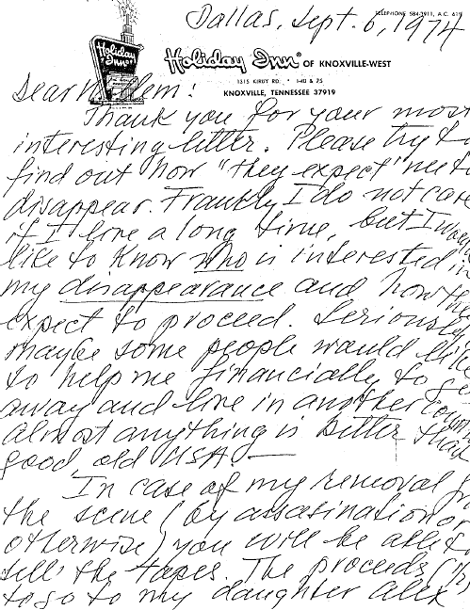 Dallas, Sept. 6, 1974
TELEPHONE 584-3911, A.C. 615
Holiday Inn
Holiday Inn OF KNOXVILLE-WEST
1315 KIRBY RD. * I-40 & 75
KNOXVILLE, TENNESSEE 37919
Dear Willem!
Thank you for your
interesting letter. Please try to
find out how "they expect" me to
disappear. Frankly I do not care
if I live a long time, but I would
like to know who is interested in
my disappearance and how they
expect to proceed. Seriously
maybe some people would like
to help me financially to get
away and live in another
almost anything is better than
good, old USA.—
In case of my removal
the scene (by assasination or
otherwise) you will be able to
sell the tapes. The proceeds
to go to my daughter Alex